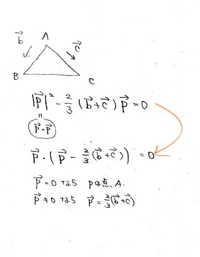 b⃗ A c⃗
B C
|p⃗|² - 2/3 (b⃗+c⃗) p⃗ = 0
=
p⃗・p⃗
p⃗・(p⃗ - 2/3 (b⃗+c⃗)) = 0
p⃗=0 なら Pは点A.
p⃗≠0 なら p⃗ = 2/3(b⃗+c⃗)